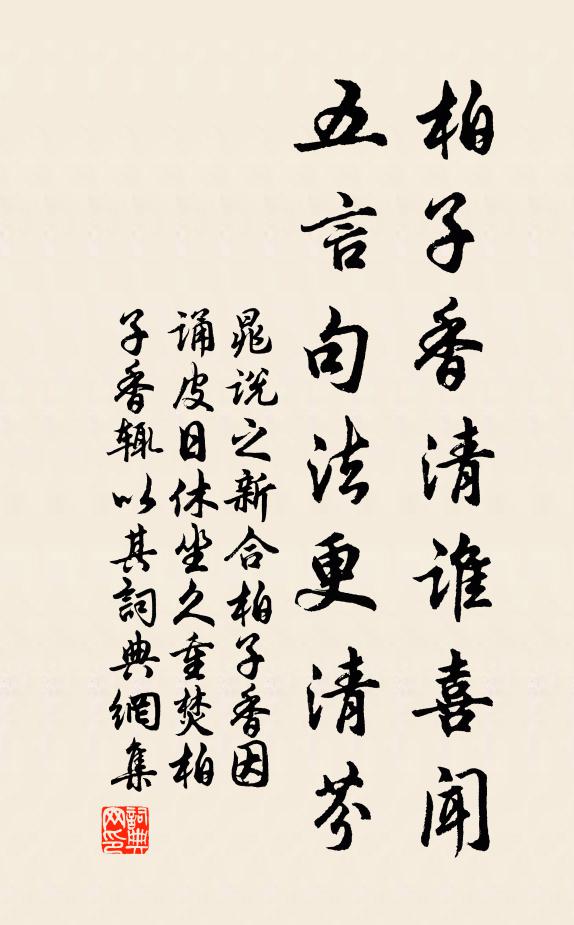 柏子香清谁喜闻
五言句法更清芬
晁说之新合柏子香因
诵皮日休坐久重焚柏
子香辄以其詞典網集
詞典网印